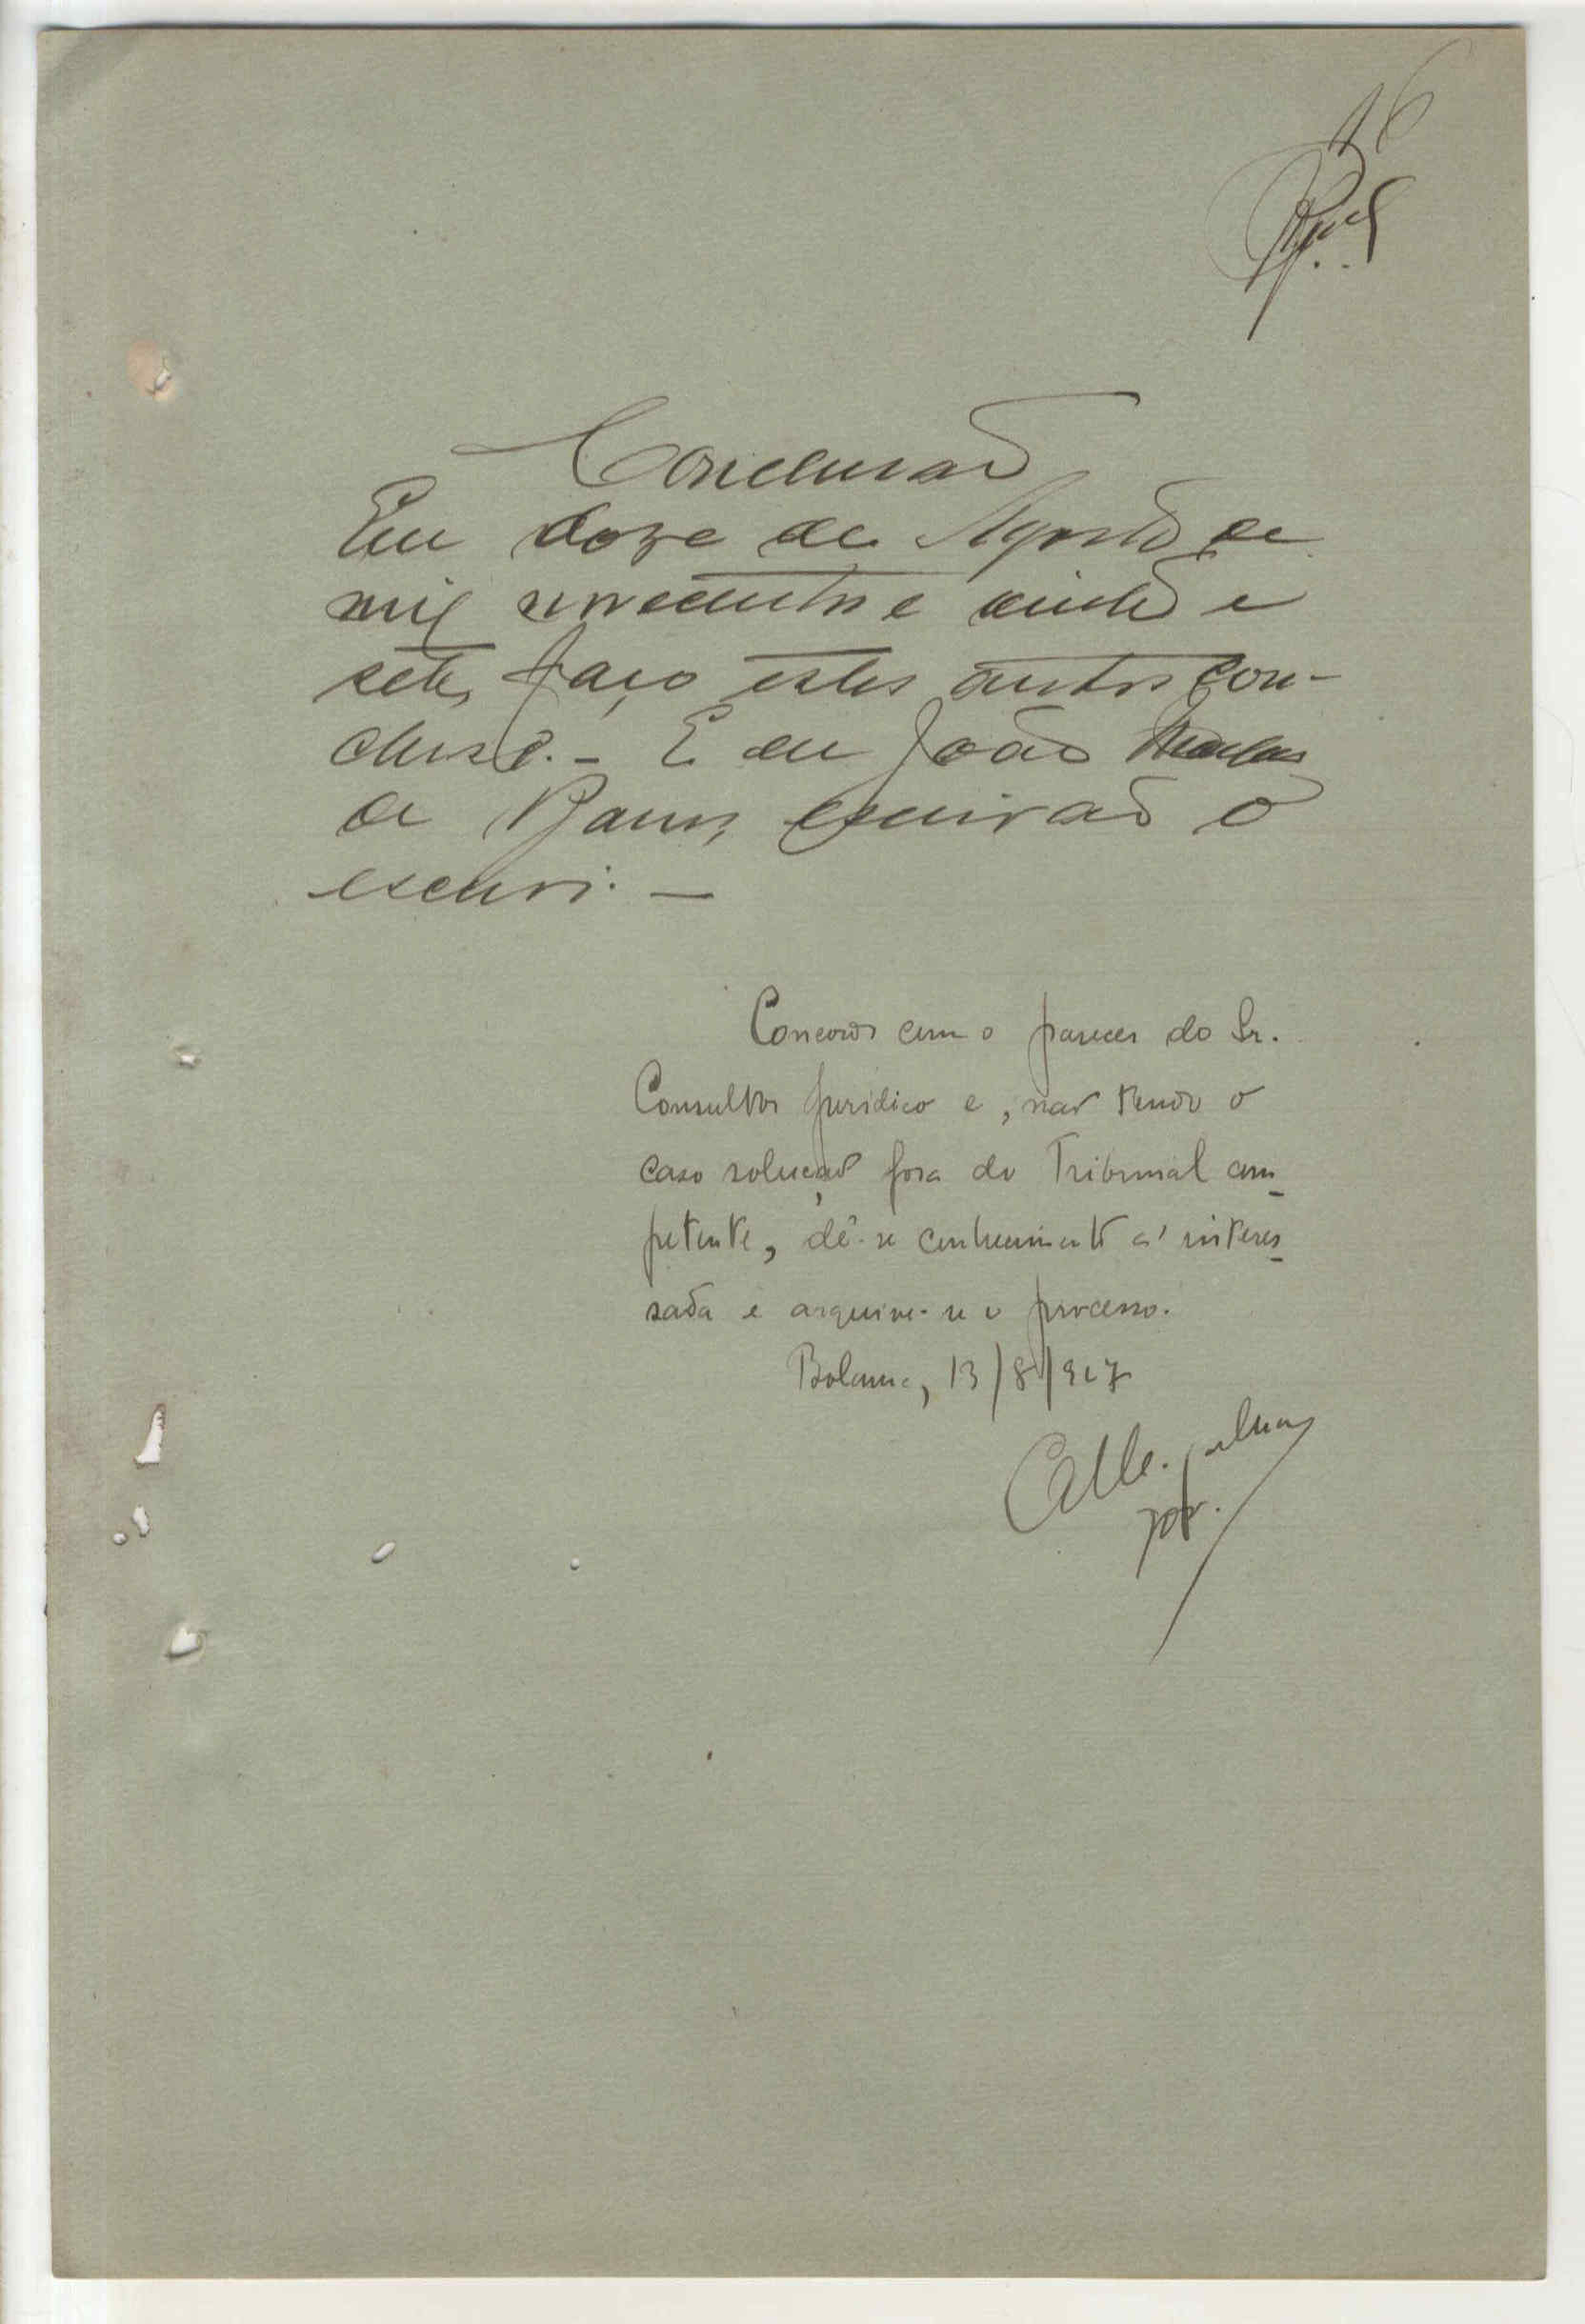 16
Conclusão
Em doze de Agosto de
mil novecentos e vinte e
sete, faço estes autos con-
clusos. - E eu João
de Barros, escrivão o
escrevi. -
Concordo com o parecer do Sr.
Consultor Juridico e, não tendo o
caso solução fora do Tribunal com-
petente, dê-se conhecimento á interes-
sada e arquive-se o processo.
Bolama, 13/8/927